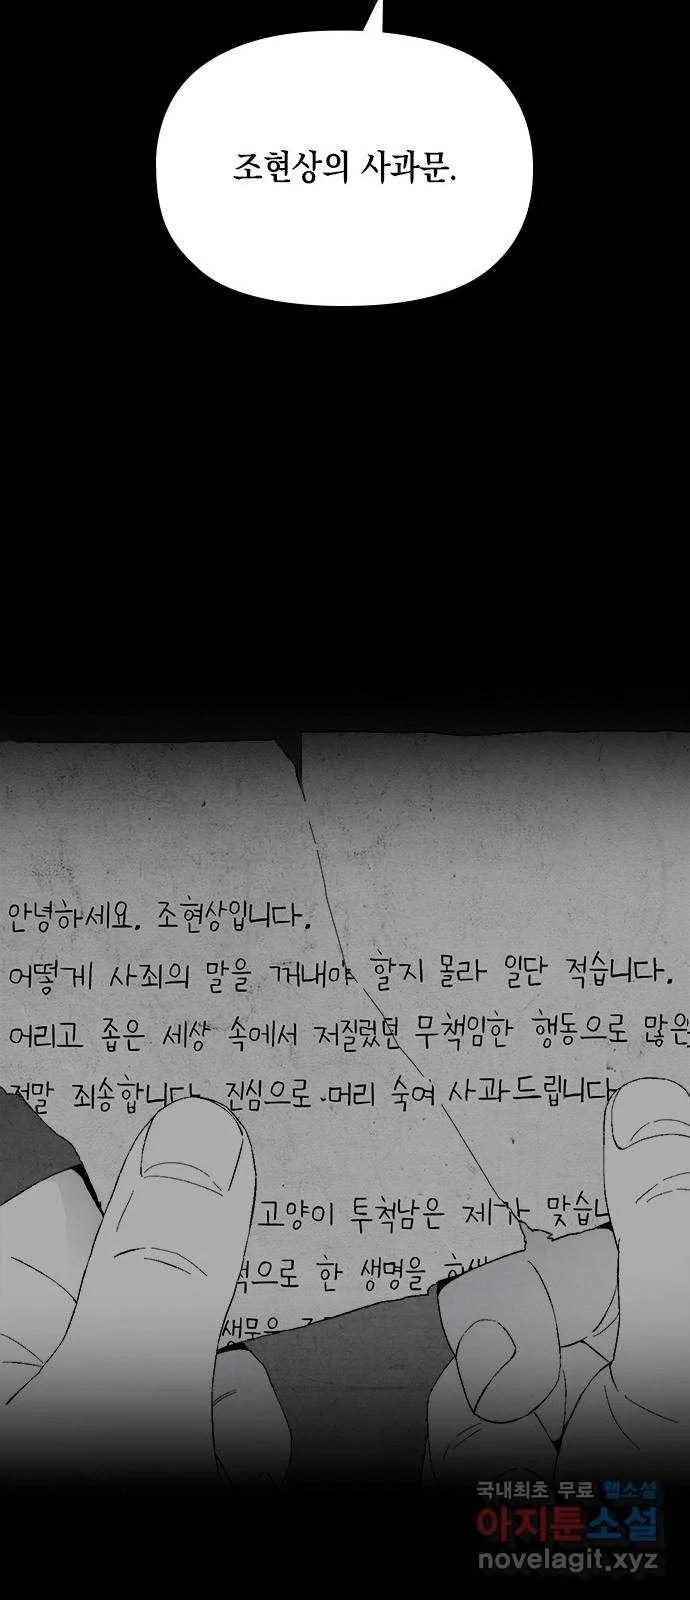 조현상의 사과문.
안녕하세요. 조현상입니다.
어떻게 사죄의 말을 꺼내야 할지 몰라 일단 적습니다.
어리고 좁은 세상 속에서 저질렀던 무책임한 행동으로 많은
정말 죄송합니다. 진심으로 머리 숙여 사과드립니다
고양이 투척남은 제가 맞습니
적으로 한 생명을
생목은
국내최초 무료 웹소설
아지툰소설
novelagit.xyz